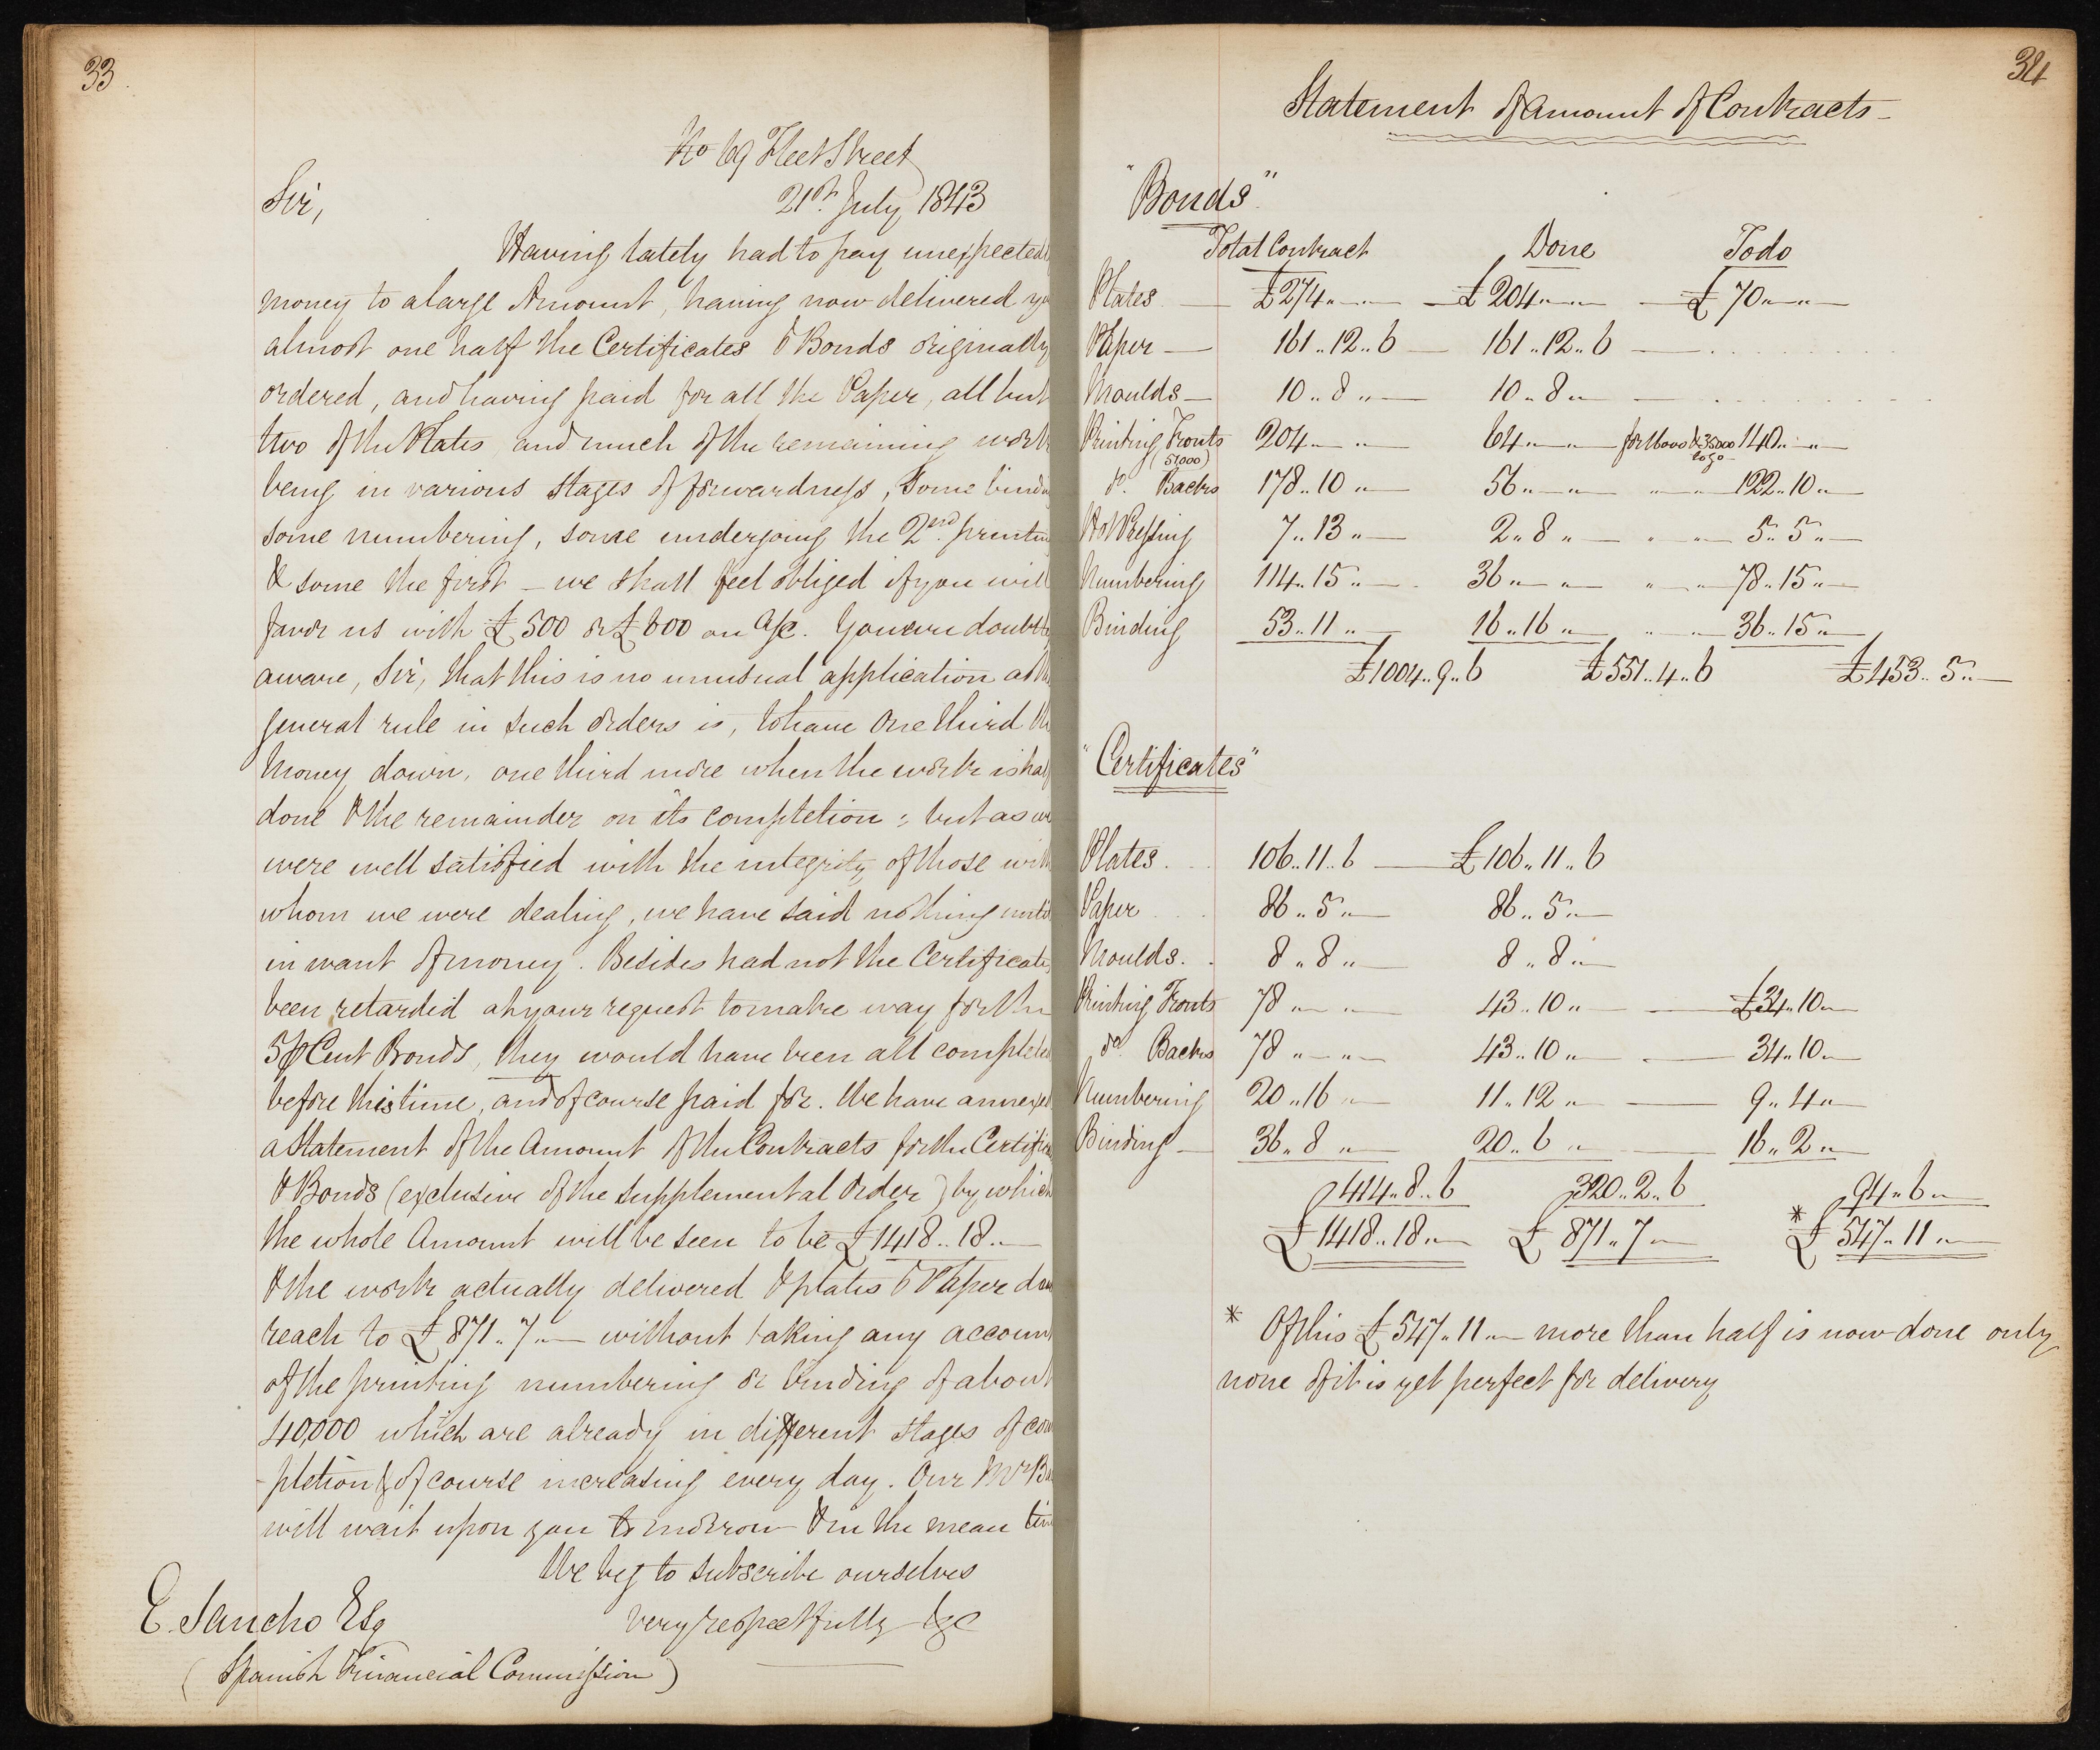 33
No 69 Fleet Street
Sir, 21st. July 1843
Having lately had to pay unexpectedly
money to a large Amount, having now delivered you
almost one half the Certificates & Bonds originally
ordered, and having paid for all the Paper, all but
two of the Plates and much of the remaining work
being in various stages of forwardness, some binding
some numbering, some undergoing the 2nd. printing
& some the first – we shall feel obliged if you will
favor us with £500 or £600 on a/c. You are doubtless
aware, Sir, that this is no unusual application as the
general rule in such orders is, to have One third the
Money down, one third more when the work is half
done & the remainder on its completion; but as we
were well satisfied with the integrity of those with
whom we were dealing, we have said nothing until
in want of money. Besides had not the Certificates
been retarded at your request to make way for the
5 ⅌ Cent Bonds, they would have been all completed
before this time, and of course paid for. We have annexed
a Statement of the Amount of the Contracts for the Certific
& Bonds (exclusive of the supplemental Order) by which
the whole Amount will be seen to be £1418..18..—
& the work actually delivered & plates & Paper done
reach to £871..7..— without taking any account
of the printing numbering or binding of about
40,000 which are already in different stages of com
-pletion & of course increasing every day. Our Mr. Ba
will wait upon you tomorrow & in the mean time
We beg to subscribe ourselves
very respectfully &c
E. Sancho Esq
(Spanish Financial Commission)
34
Statement of Amount of Contracts –
"Bonds"
Total Contract Done To do
Plates — £274..—..— — £204..—..— — £70..—..—
Paper — 161..12..6 — 161..12..6 — . . . . . . . .
Moulds — 10..8..— 10..8..— — . . . . . . . .
Printing Fronts 204..—..— 64..—..— — for 16000 & 35000 to go 140..—..—
(51,000)
do. Backs 178..10..— 56..—..— ..—..— 122..10..—
Hot Pressing 7..13..— 2..8..— " " — 5..5..—
Numbering 114..15..— 36..—..— " " — 78..15..—
Binding 53..11..— 16..16..— " " — 36..15..—
£1004..9..6 £551..4..6 £453..5..—
"Certificates"
Plates . . 106..11..6 — £106..11..6
Paper . . 86..5..— 86..5..—
Moulds. . 8..8..— 8..8..—
Printing Fronts 78..—..— 43..10..— — £34..10..—
do. Backs 78..—..— 43..10..— — 34..10..—
Numbering 20..16..— 11..12..— — 9..4..—
Binding — 36..8..— 20..6..— — 16..2..—
414..8..6 320..2..6 94..6..—
£1418..18..— £871..7..— * £547..11..—
* Of this £547..11..— more than half is now done only
none of it is yet perfect for delivery